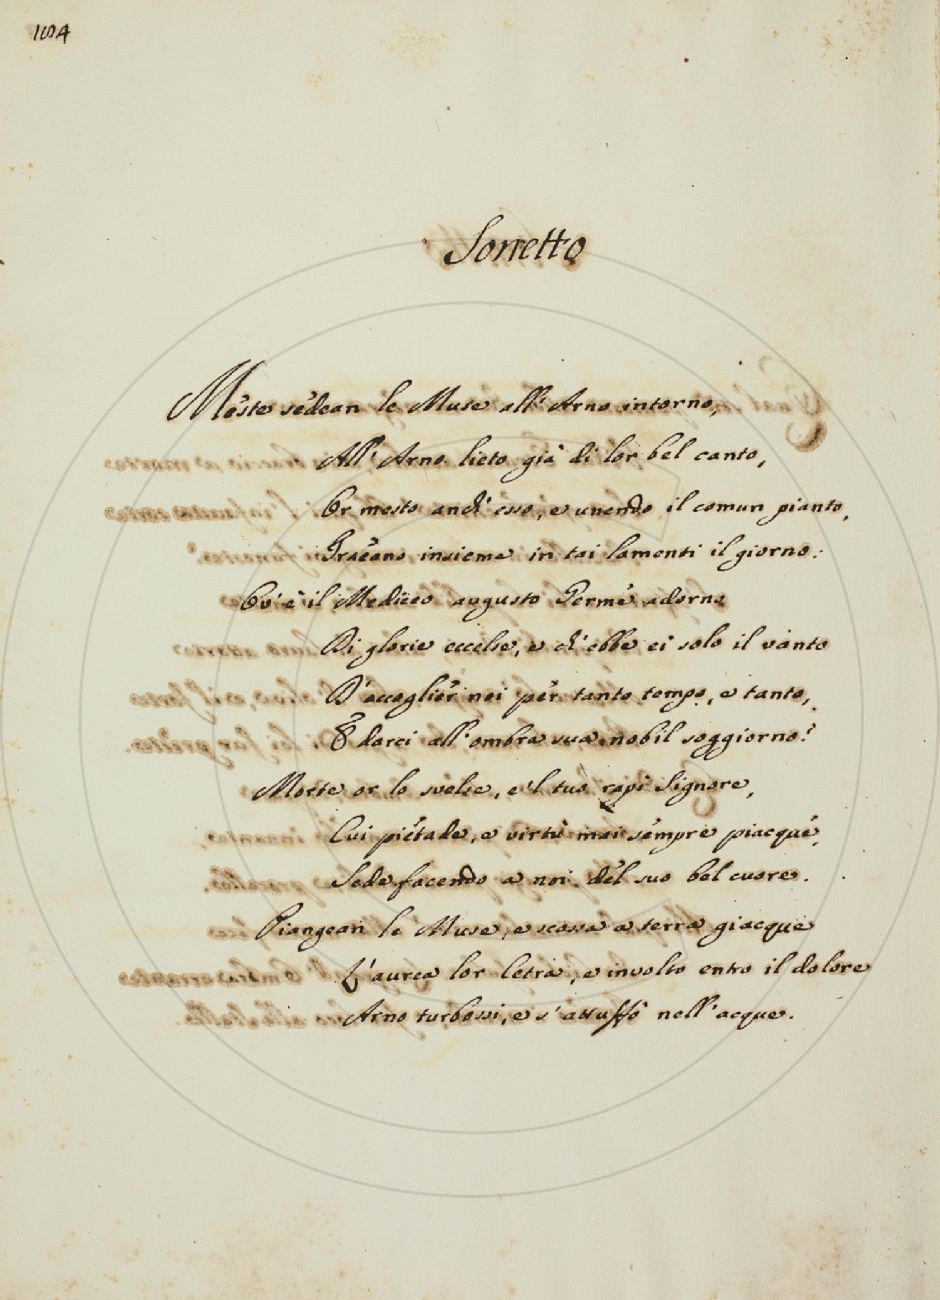 184
Sonetto
Meste sedean le Muse all' Arno intorno,
All' Arno lieto già di lor bel canto,
Or mesto anch' esso, e unendo il comun pianto,
Traeano insieme in tai lamenti il giorno:
Ov' è il Mediceo augusto Germe adorno
Di glorie eccelse, e ch' ebbe ei solo il vanto
D' accoglier noi per tanto tempo, e tanto,
E darci all' ombra sua nobil soggiorno?
Morte or lo svelse, e 'l tuo rapì Signore,
Cui pietade, e virtù mai sempre piacque,
Sede facendo a noi del suo bel cuore.
Piangean le Muse, e scossa a terra giacque
L' aurea lor Cetra, e involto entro il dolore
Arno turbossi, e s' attuffò nell' acque.